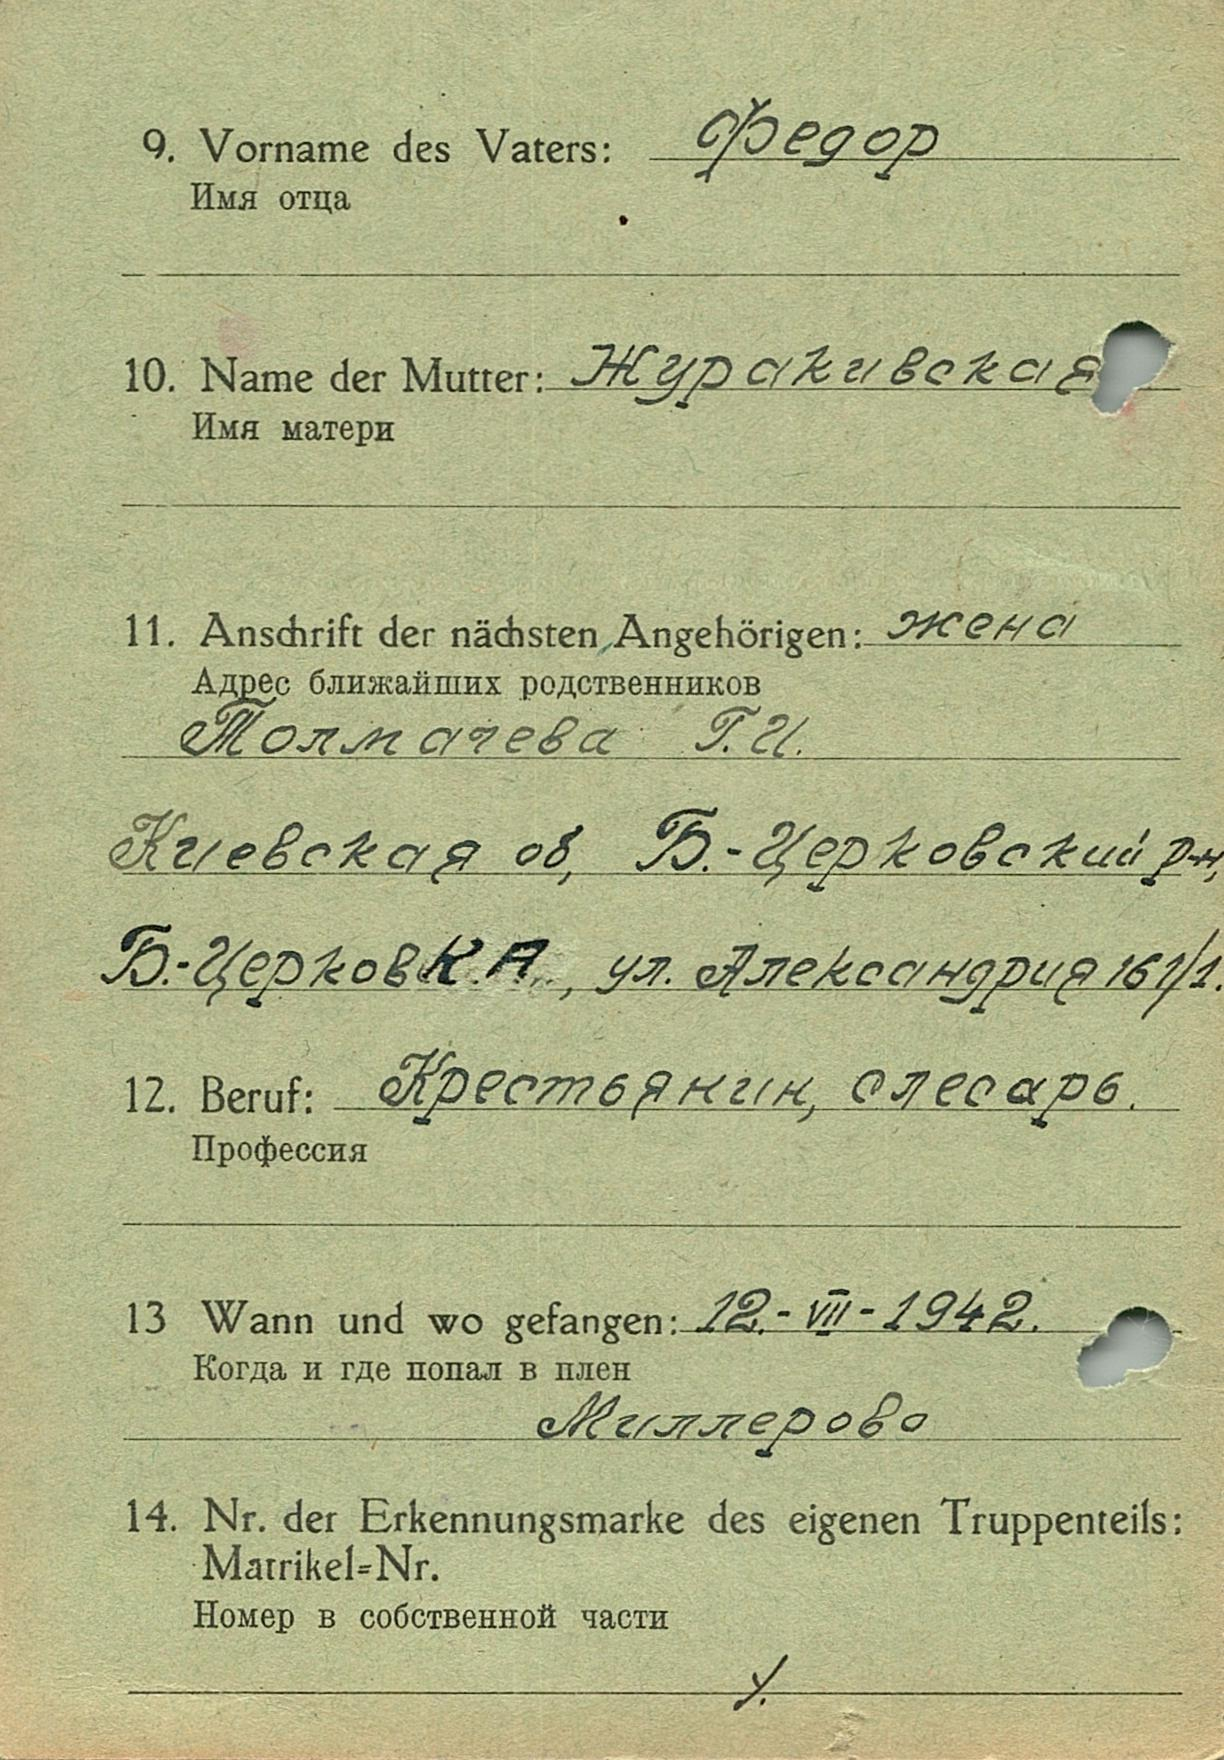 9. Vorname des Vaters: Федор
Имя отца
10. Name der Mutter: Журакивская
Имя матери
11. Anschrift der nächsten Angehörigen: жена
Адрес ближайших родственников
Толмачева Г.И.
Киевская об, Б.-Церковский р-н,
Б.-Церковк.А., ул. Александрия 161/1.
12. Beruf: Крестьянин, слесарь.
Профессия
13 Wann und wo gefangen: 12.-VII-1942.
Когда и где попал в плен
Миллерово
14. Nr. der Erkennungsmarke des eigenen Truppenteils:
Matrikel=Nr.
Номер в собственной части